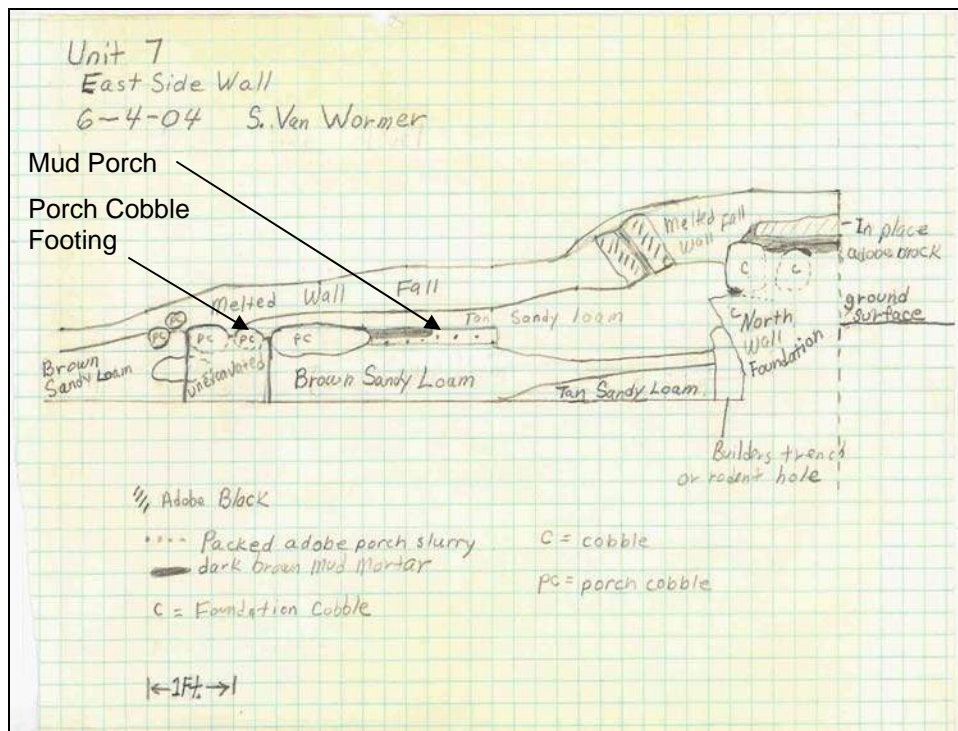 Unit 7
East Side Wall
6-4-04 S. Van Wormer
Mud Porch
Porch Cobble
Footing
Melted Fall
Wall
In place
adobe brock
C
C
Melted Wall Fall
Tan Sandy loam
ground
surface
C
North
Wall
Foundation
PC
PC
PC
PC
PC
Brown
Sandy Loam
unexcavated
Brown Sandy Loam
Tan Sandy Loam
Builders trench
or rodent hole
Adobe Block
Packed adobe porch slurry
dark brown mud mortar
C = Foundation Cobble
C = cobble
PC = porch cobble
1Ft.